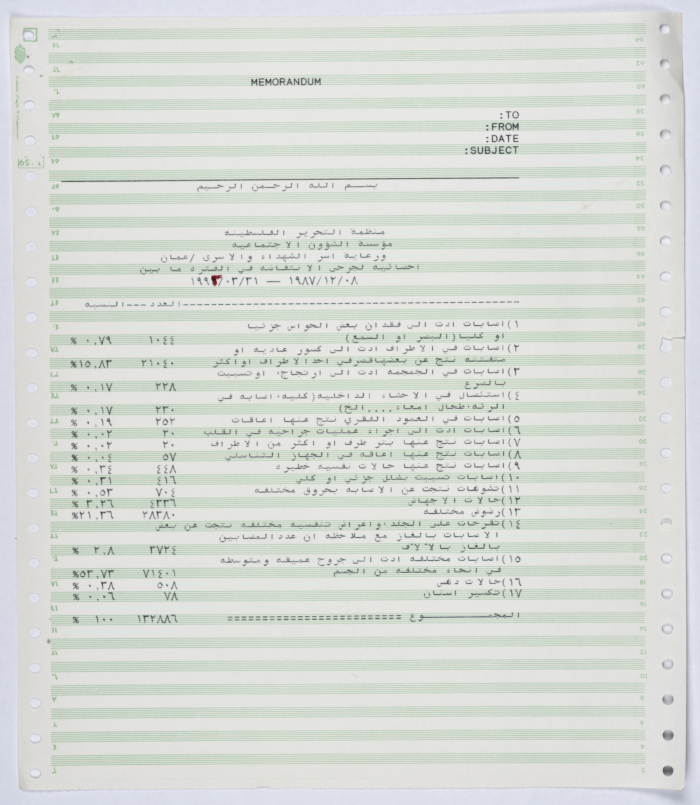 MEMORANDUM
:TO
:FROM
:DATE
:SUBJECT
بسم الله الرحمن الرحيم
منظمة التحرير الفلسطينه
مؤسسة الشؤون الاجتماعيه
ورعاية اسر الشهداء والاسرى /عمان
احصائية لجرحى الانتفاضه في الفتره ما بين
١٩٨٧/١٢/٠٨ — /٠٣/٣١
العدد --- النسبه
١) اصابات ادت الى فقدان بعض الحواس جزئيا
او كليا(البصر او السمع) ١٠٤٤ ٠,٧٩ %
٢) اصابات في الاطراف ادت الى كسور عاديه او
متفتته نتج عن بعضها قصر في احد الاطراف او اكثر ٢١٠٤٠ ١٥,٨٣%
٣) اصابات في الجمجمه ادت الى ارتجاج، او تسببت
بالصرع ٢٢٨ ٠,١٧ %
٤) استئصال في الاحشاء الداخليه(كليه، اصابه في
الرئه، طحال امعاء....الخ) ٢٣٠ ٠,١٧ %
٥) اصابات في العمود الفقري نتج عنها اعاقات ٢٥٢ ٠,١٩ %
٦) اصابات ادت الى اجراء عمليات جراحيه في القلب ٢٠ ٠,٠٢ %
٧) اصابات نتج عنها بتر طرف او اكثر من الاطراف ٢٠ ٠,٠٢ %
٨) اصابات نتج عنها اعاقه في الجهاز التناسلي ٥٧ ٠,٠٤ %
٩) اصابات نتج عنها حالات نفسيه خطيره ٤٤٨ ٠,٣٤ %
١٠) اصابات تسببت بشلل جزئي او كلي ٤١٦ ٠,٣١ %
١١) تشوهات نتجت عن الاصابه بحروق مختلفه ٧٠٤ ٠,٥٣ %
١٢) حالات الاجهاض ٤٣٣٦ ٣,٢٦ %
١٣) رضوض مختلفه ٢٨٣٨٠ ٢١,٣٦%
١٤) تقرحات على الجلد، واعراض تنفسيه مختلفه نتجت عن بعض
الاصابات بالغاز مع ملاحظه ان عدد المصابين
بالغاز بالالاف ٣٧٢٤ ٢,٨ %
١٥) اصابات مختلفه ادت الى جروح عميقه ومتوسطه
في انحاء مختلفه من الجسم ٧١٤٠١ ٥٣,٧٣%
١٦) حالات دهس ٥٠٨ ٠,٣٨ %
١٧) تكسير اسنان ٧٨ ٠,٠٦ %
المجمـــــوع ======================== ١٣٢٨٨٦ ١٠٠ %